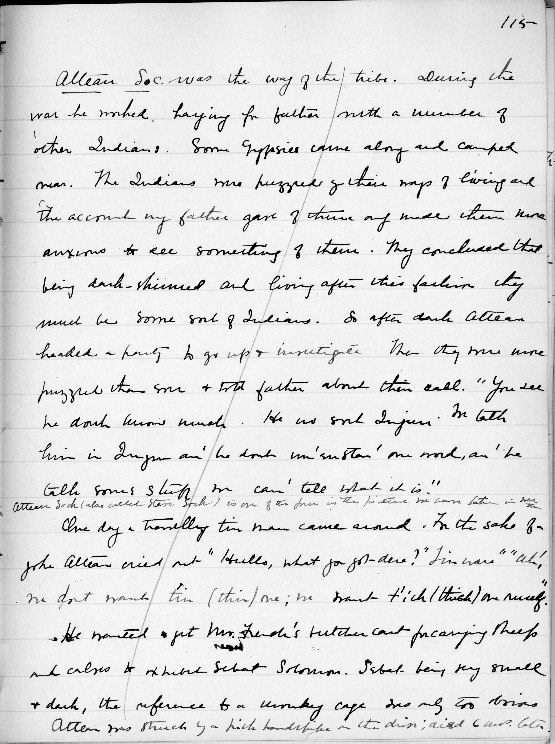 115
Attean Soc. was the way of the tribe. During the
war he worked haying for father with a number of
other Indians. Some Gypsies came along and camped
near. The Indians were puzzled by their ways of living and
the account my father gave of them only made them more
anxious to see something of them. They concluded that
being dark-skinned and living after this fashion they
must be some sort of Indians. So after dark Attean
headed a party to go up & investigate. Then they were more
puzzled than ever & told father about their call. "You see
he don't know much. He no sort Injun. We talk
him in Injun an' he don't un'erstan' one word, an' he
talk some stuff we can't tell what it is."
Attean Sock (also called Steve Sock) is one of the four in the picture we have taken in
One day a travelling tin man came around. For the sake of a
joke Attean cried out "Hullo, what you got dere?" "Tin ware" "Ah',
we don't want tin (thin) one; we want t'ick (thick) one
He wanted to get Mr. butcher cart for carrying sheep
and calves to exhibit Sebat Solomon. Sebat being very small
& dark, the reference to a monkey cage was only too obvious
Attean was struck by a pick handspike on the drive; died 6 mos. later